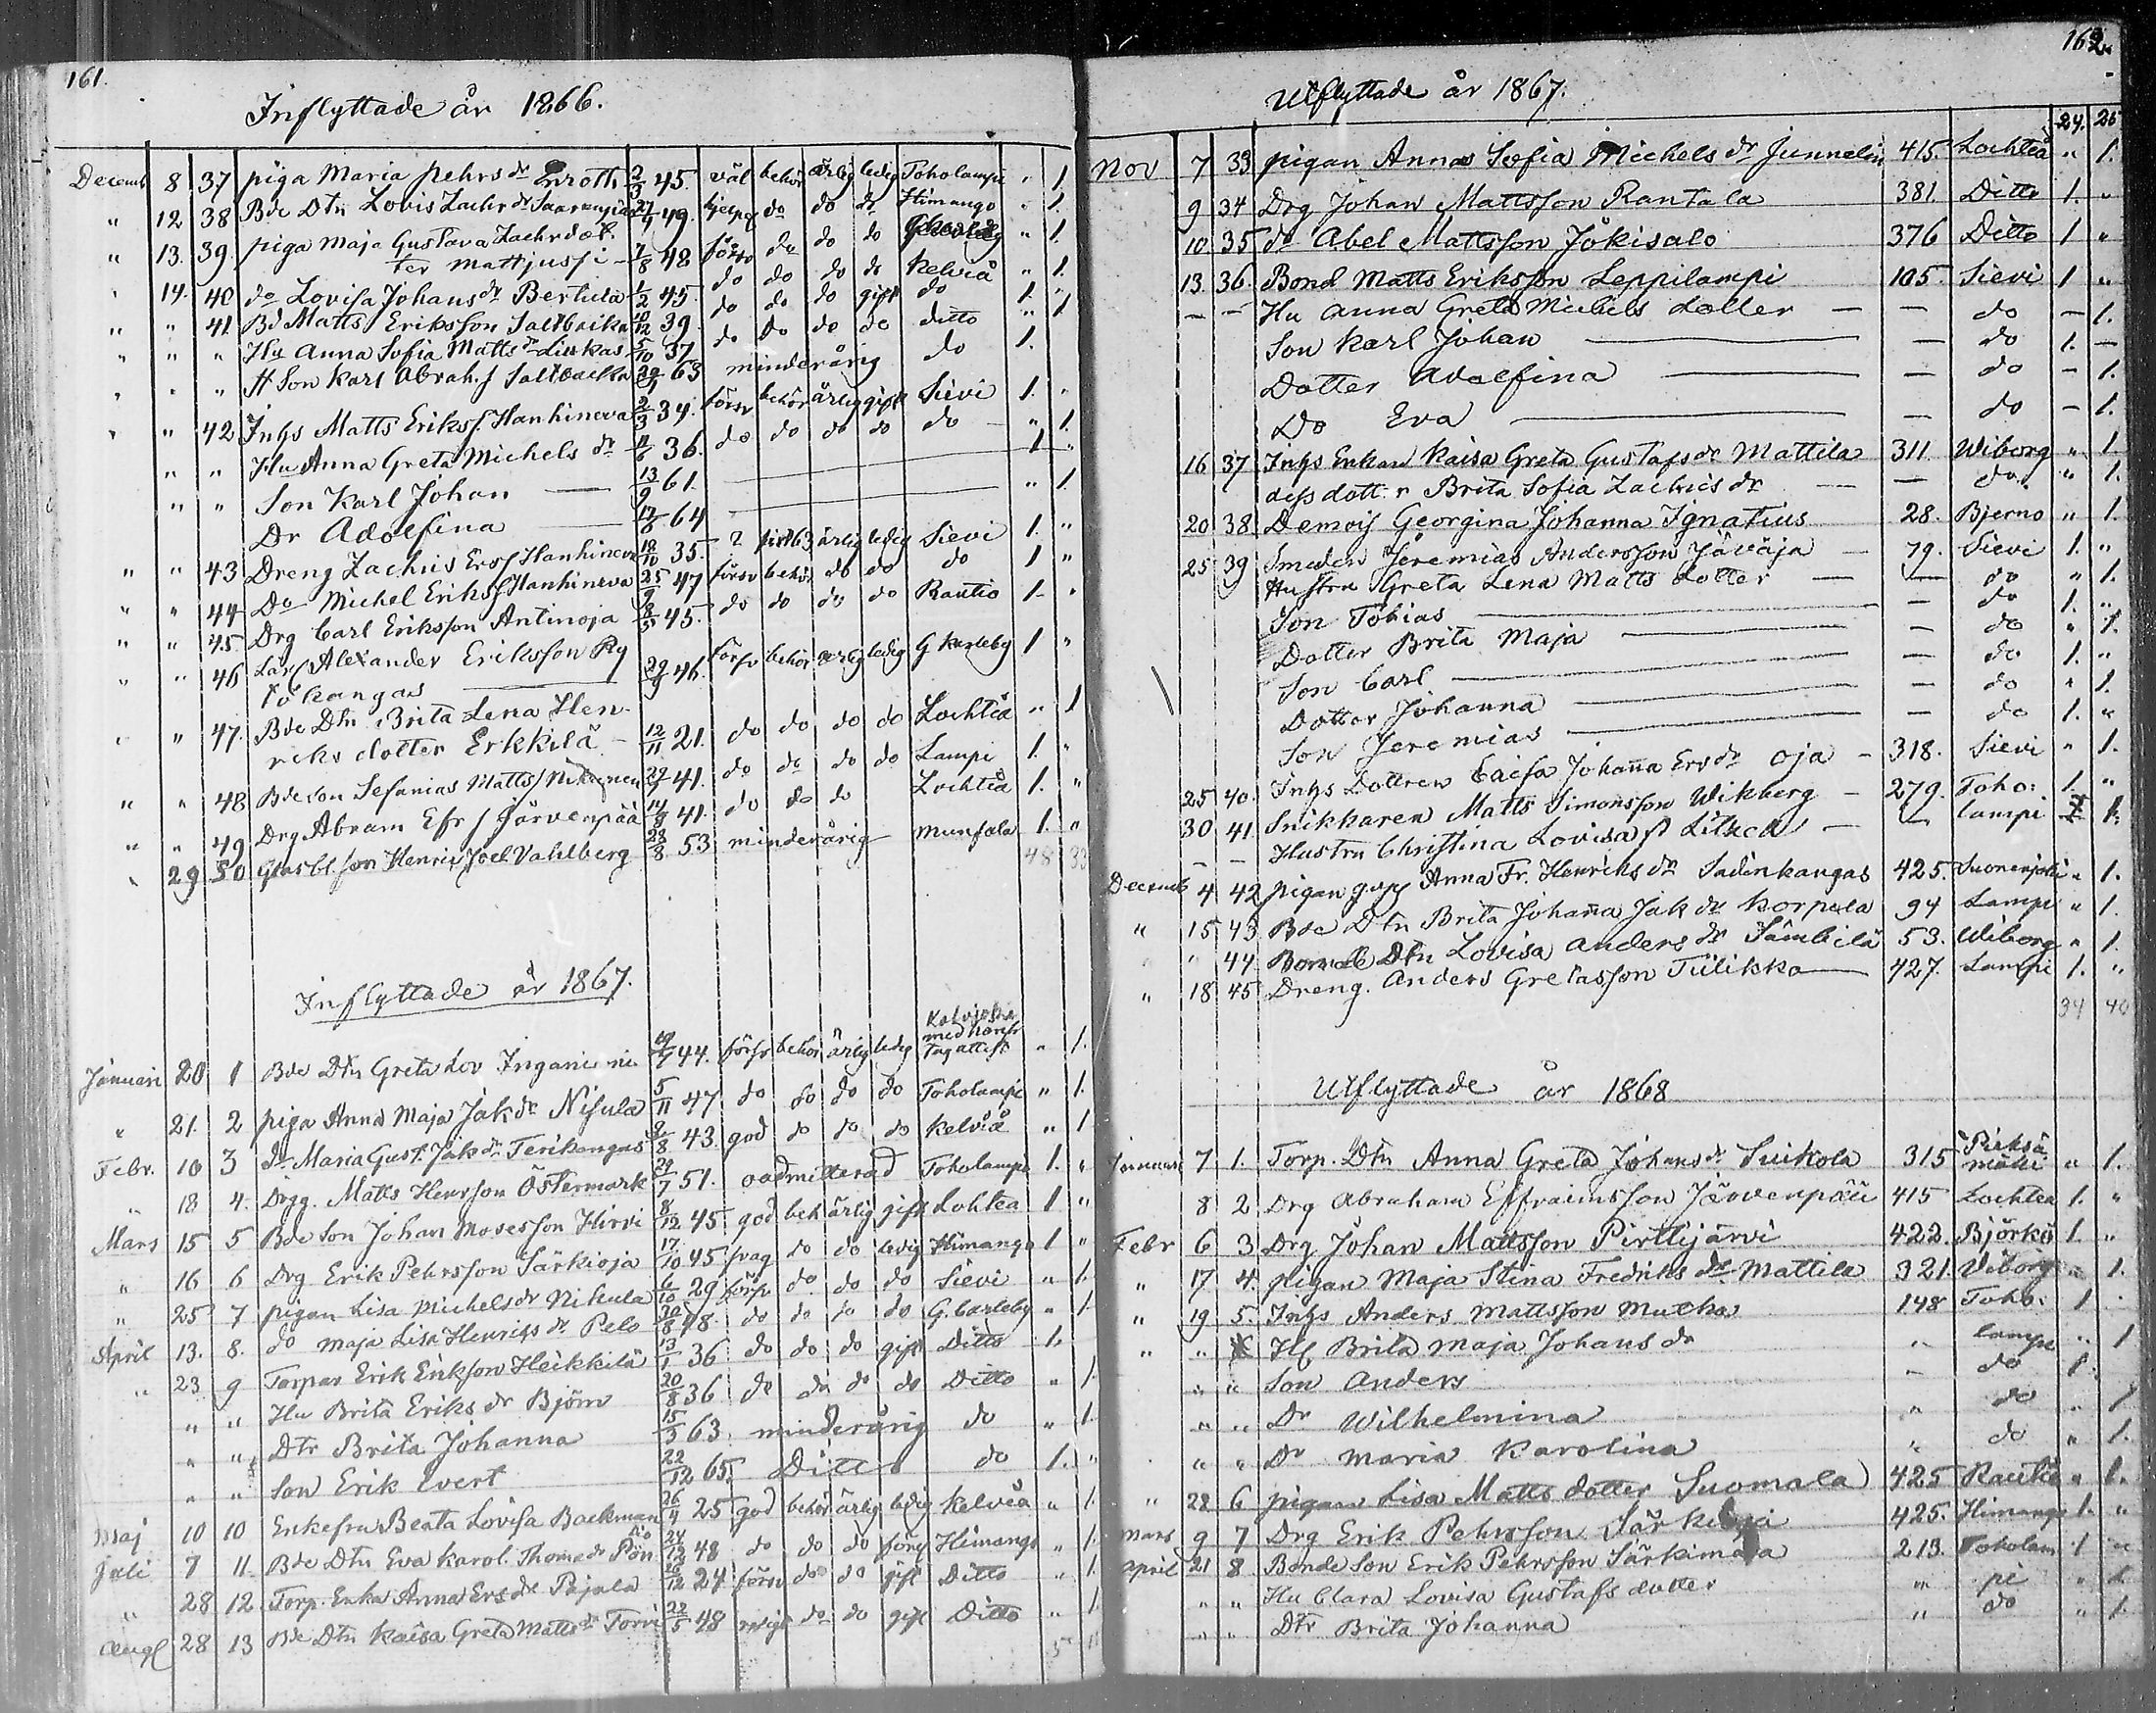 161.
Inflyttade år 1866.
Decemb 8 37 piga Maria Pehrs dr Enroth 2/3 45. väl behör ärlig ledig Toholampi " 1.
" 12 38 Bde Dtr Lovis Zachr dr 27/7 49. hjelpg do do do Himango " 1.
" 13. 39. piga Maja Gustava Zachrdot.
ter Mattjussi - 7/8 48 försv do do do " 1.
" 14. 40 do Lovisa Johans dr Bertula 1/2 45. do do do do Kelviå " 1.
" " 41. Bd Matts Eriksson Saltbacka 10/12 39. do do do gift do 1. "
" " " Hu Anna Sofia Matts dr Linkas 5/10 37 do do do do ditto " 1
" " " Son Karl Abrah. Saltbacka 29/1 63 minderårig do 1.
" " 42 Inhs Matts Eriks. Hanhineva 2/3 34. försv behör ärlig gift Sievi 1. "
" " Hu Anna Greta Michels dr 11/6 36. do do do do do " 1.
" " Son Karl Johan 13/9 61. 1 "
Dr Adolfina 17/6 64 " 1
" " 43 Dreng Zachris Ers Hanhineva 18/10 35. ärlig ledig Sievi 1. "
" " 44 Do Michel Eriks Hanhineva 25/9 47 försv behör do do do 1 "
" " 45. Drg Carl Eriksson Antinoja 8/5 45. do do do do Rautio 1. "
" " 46 Alexander Eriksson Ry
tökangas 29/9 46. försv behör ärlig ledig G karleby 1 "
" " 47. Bde Dtr Brita Lena Hen
riks dotter Erkkilä - 12/11 21. do do do do Lochteå " 1
" " 48 Bde son Sefanias Matts 27/9 41. do do do do Lampi 1. "
" " 49 Drg Abram Efr Järvenpää 14/9 41. do do do Lochteå 1. "
" 29 50 Glasbl son Henrik Joel Vahlberg 23/8 53 minderårig Munsala 1. "
48 33
Inflyttade år 1867.
Januari 20 1 Bde Dtr Greta Lov 44. försv behör ärlig ledig " 1.
" 21. 2 piga Anna Maja Jak dr Nisula 5/11 47 do do do do Toholampi " 1.
Febr. 10 3 dr Maria Gust. Jak dr Terikangas 9/8 43. god do do do Kelviå " 1
" 18 4. Drgg. Matts Henrsson Östermark 29/7 51. oadmitterad Toholampi 1. "
Mars 15 5 Bde Son Johan Mosesson Hirvi 8/12 45 god beh ärlig gift Lohtea 1 "
" 16 6 Drg Erik Pehrsson Särkioja 17/10 45 svag do do ledig Himango 1 "
" 25 7 pigan Lisa Michels dr Nikula 6/10 29 försv do. do do Sievi " 1.
April 13. 8. do Maja Lisa Henriks dr Pelo 20/8 48. do do do do G. Carleby " 1
" 23 9 Torpar Erik Eriksson Heikkilä 13/1 36 do do do gift Ditto 1.
" " Hu Brita Eriks dr Björn 20/8 36 do do do do Ditto " 1.
" " Dtr Brita Johanna 15/3 63. minderårig do " 1.
" " Son Erik Evert 22/12 65. Ditto do 1. "
Maj 10 10 Enkefru Beata Lovisa Backman 26/4 25 god behör ärlig ledig Kelviå " 1.
Juli 7 11. Bde Dtr Eva Karol. Thome dr Pön
niö 24/12 48 do do do förg Himango " 1.
" 28 12. Torp. Enka Anna Ers dr Pajala 12 24 försv do do gift Ditto " 1.
Augl 28 13 Bde Dtr Kaisa Greta Matts dr Torvi 22/5 48 do do gift Ditto " 1
162.
Utflyttade år 1867.
24. 25
Nov 7 33 pigan Anna Sofia Michels dr Junnelin 415. Lochteå " 1.
9 34 Drg Johan Mattsson Rantala 381. Ditto 1. "
10. 35 do Abel Mattsson Jokisalo 376 Ditto 1 "
13. 36. Bond Matts Eriksson Leppilampi 105. Sievi 1 "
— — Hu Anna Greta Michels dotter — — do — 1.
Son Karl Johan — — do 1. —
Dotter Adolfina — — do — 1.
Do Eva — — do — 1.
16 37 Inhs Enkan Kaisa Greta Gustafs dr Mattila 311. Wiborg " 1.
dess dotter Brita Sofia Zachris dr — — do. " 1.
20 38 Demois Georgina Johanna Ignatius 28. Bjerno " 1.
25 39 Smeden Jeremias Andersson Jäväjä — 79. Sievi 1. "
Hustru Greta Lena Matts dotter — — do " 1.
Son Tobias — — do 1. "
Dotter Brita Maja — — do " 1.
Son Carl — — do 1. "
Dotter Johanna — — do " 1.
Son Jeremias — — do 1. "
25 40. Inhs Dottren Caisa Johanna Ers dr Oja - 318. Sievi " 1.
30 41. Snikkaren Matts Simonsson Wikberg - 279. Toho: 1. "
— — Hustru Christina Lovisa — — lampi 1.
Decemb 4 42 pigan Anna Fr. Henriks dr Sadinkangas 425. Suonenjoki " 1.
" 15 43 Bde Dtr Brita Johanna Jak dr Korpela 94 Lampi " 1.
" " 44 Bonde Dtr Lovisa Anders dr Sämbilä 53. Wiborg " 1.
" 18 45 Dreng. Anders Gretasson Tiilikka — 427. Lampi 1. "
34 40
Utflyttade år 1868
Januari 7 1. Torp. Dtr Anna Greta Johans dr Suikola 315 Pieksä
mäki " 1.
8 2 Drg Abraham Effraimsson Järvenpää 415 Lochtea 1. "
Febr 6 3 Drg Johan Mattsson Pirttijärvi 422. Björkö 1. "
" 17 4. pigan Maja Stina Fredriks dr Mattila 321. Viborg " 1.
" 19 5. Inhs Anders Mattsson Mutka 148 Toho: 1 "
" " Hu Brita Maja Johans dr " lampi " 1
" " Son Anders - do 1.
" " Dr Wilhelmina " do " 1
" " Dr Maria Karolina " do " 1.
" 28 6 pigan Lisa Matts dotter Suomala 425 Rautio " 1.
Mars 9 7 Drg Erik Pehrsson Särkioja 425. Himango 1. "
April 21 8 Bonde Son Erik Pehrsson Särkimaa 213. Toholam 1 "
" " Hu Clara Lovisa Gustafs dotter " pi " 1.
" " Dtr Brita Johanna " do " 1.